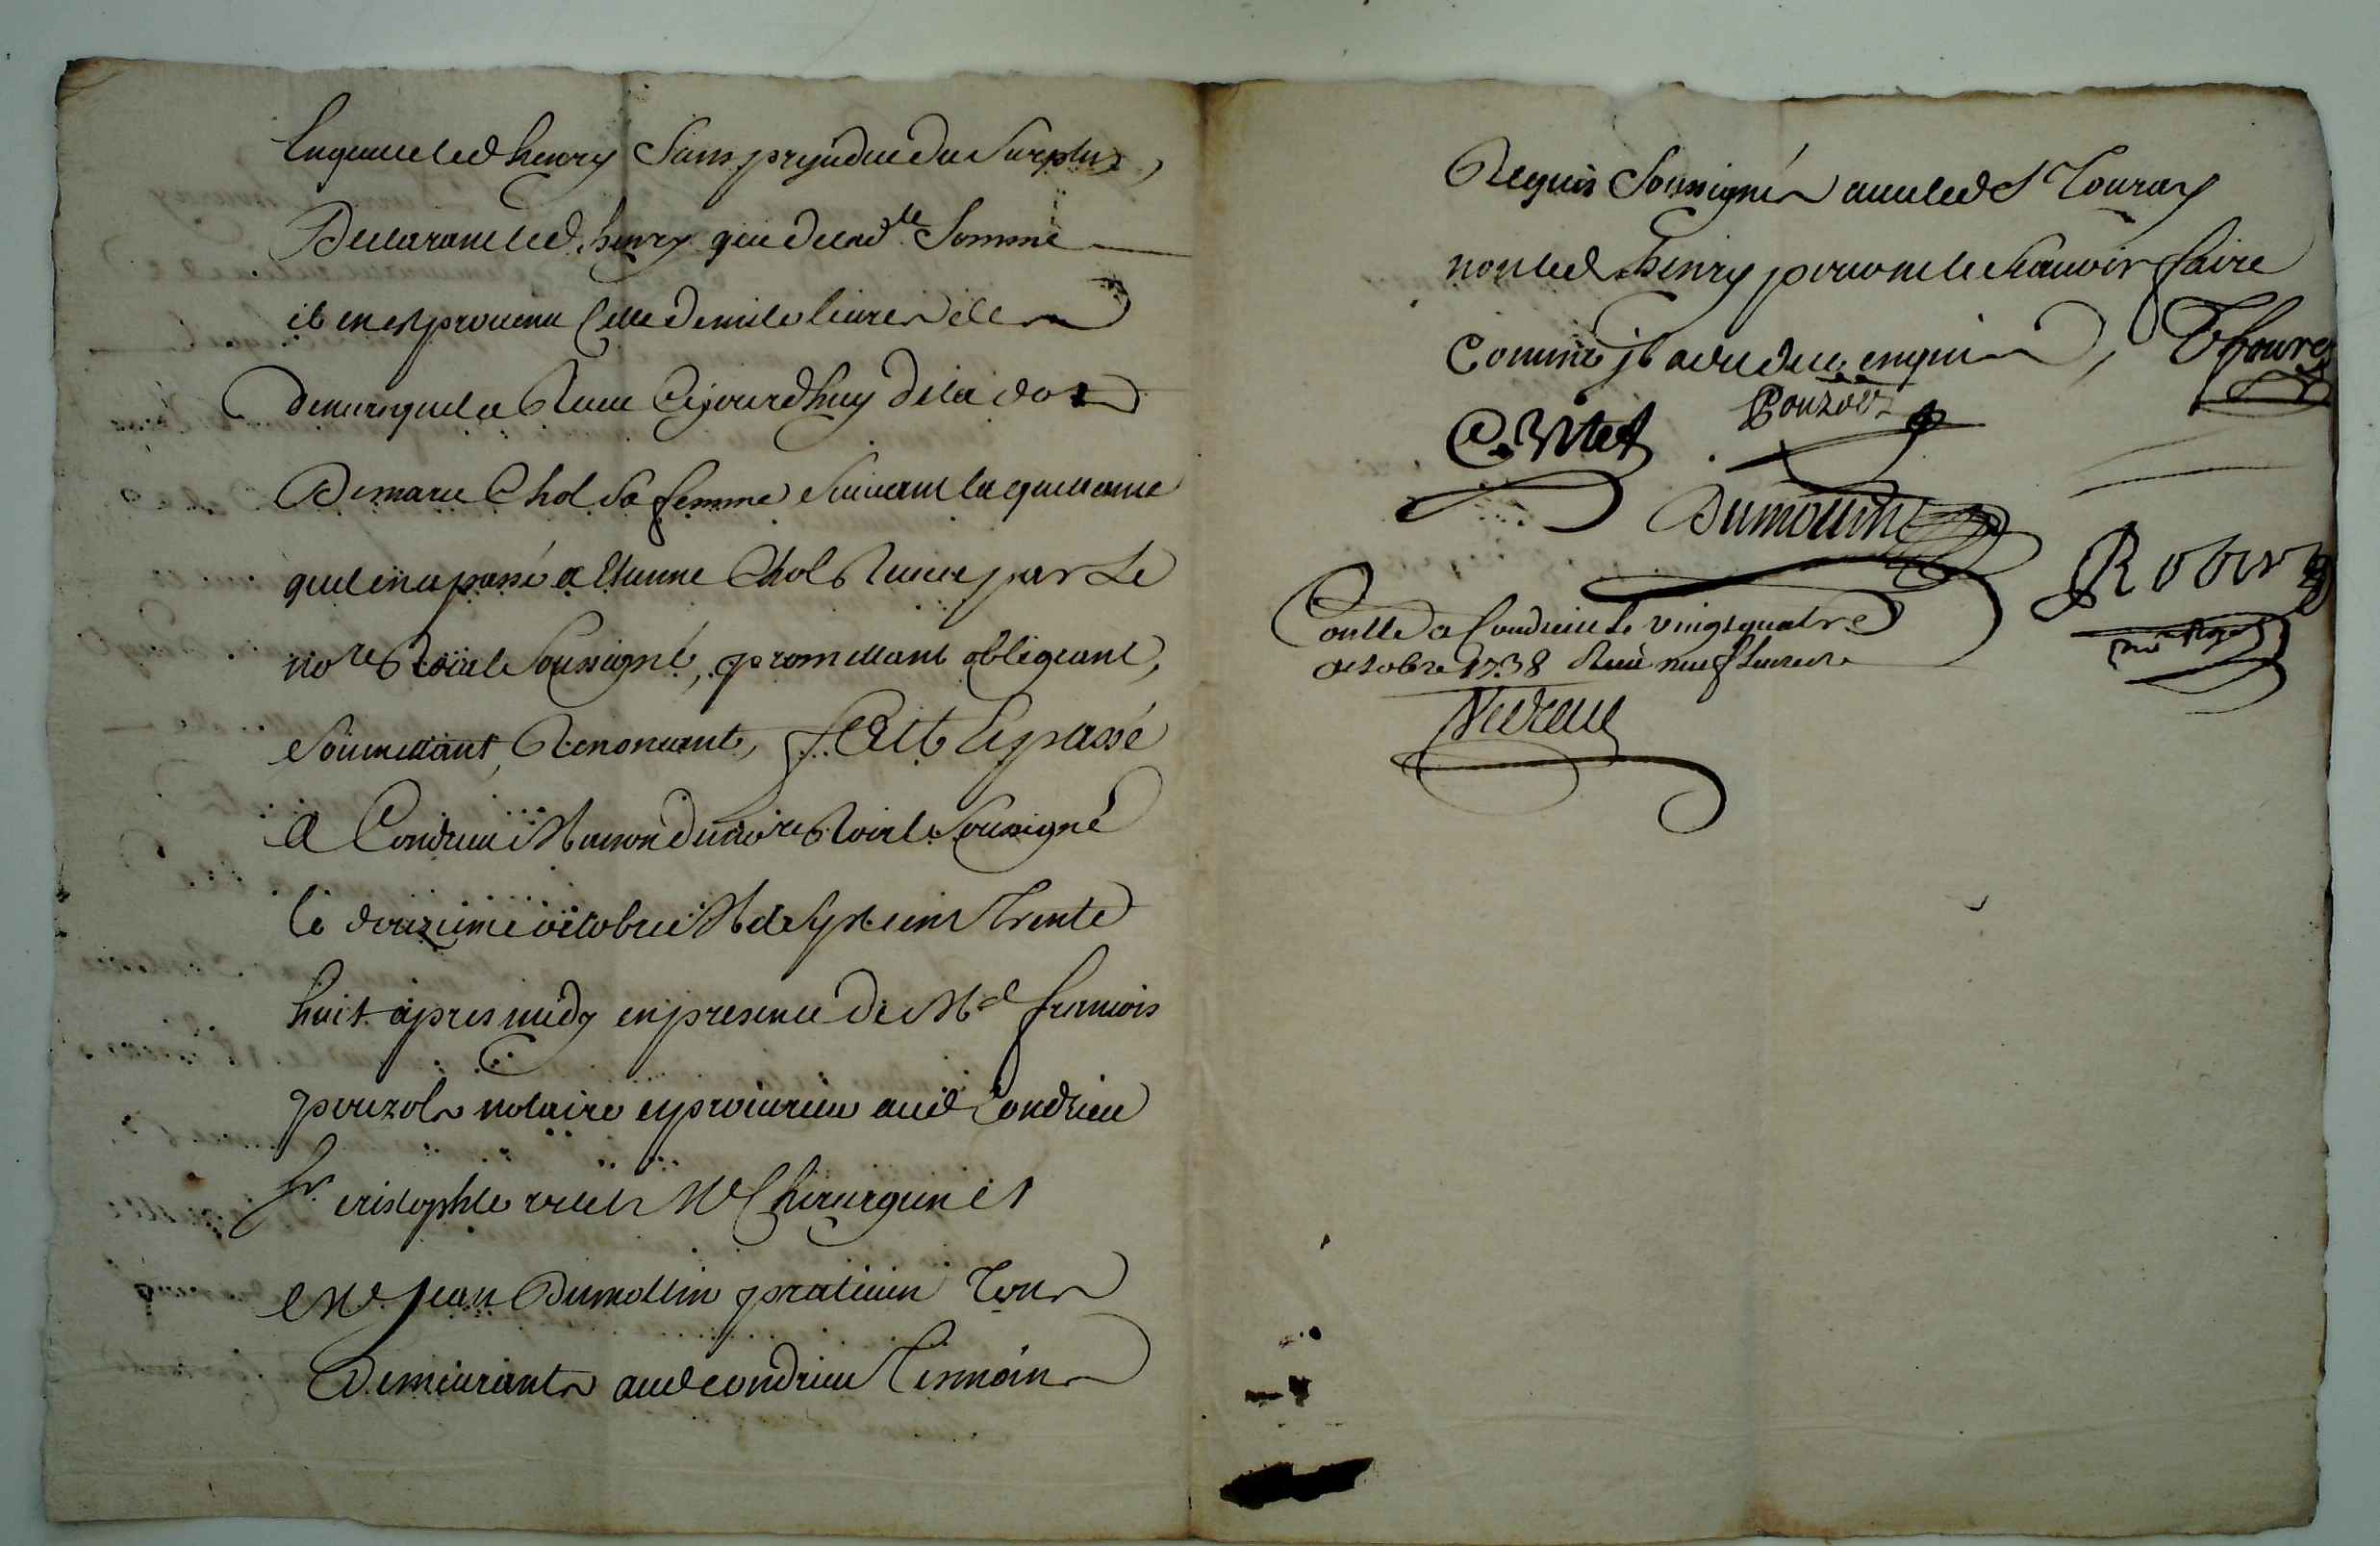 en quitte led henry Sans prejudice du Surplus,
Declarant led. henry que de lad.te Somme
il en est provenu Celle de mil livres des
deniers quil a Receu Cejourdhuy de la dot
De marie Chol Sa femme Suivant la quittance
quil en a passé a Etienne Chol Receue par Le
no.re Roial Soussigné, promettant obligeant,
Soumettant, Renoncant, fait & passé
a Condrieu Maison du no.re Roial Soussigné
le douzieme octobre Mil Sept cent Trente
huit apres midy en presence de M.e francois
pouzols notaire & procureur aud Condrieu
Sr. cristophle vitet M.e Chirurgien &
& M.e Jean Dumollin praticien Tous
Demeurants aud condrieu Tesmoins
Requis Soussignés avec led Sr Touray
non led henry pour ne le scavoir faire
Comme il a dit de ce enquis,
C. Vitet
Pouzols
Dumoulin
Conllé a Condrieu le vingt quatre
octobre 1738 Receu neuf livres
Robert
no.re Royal